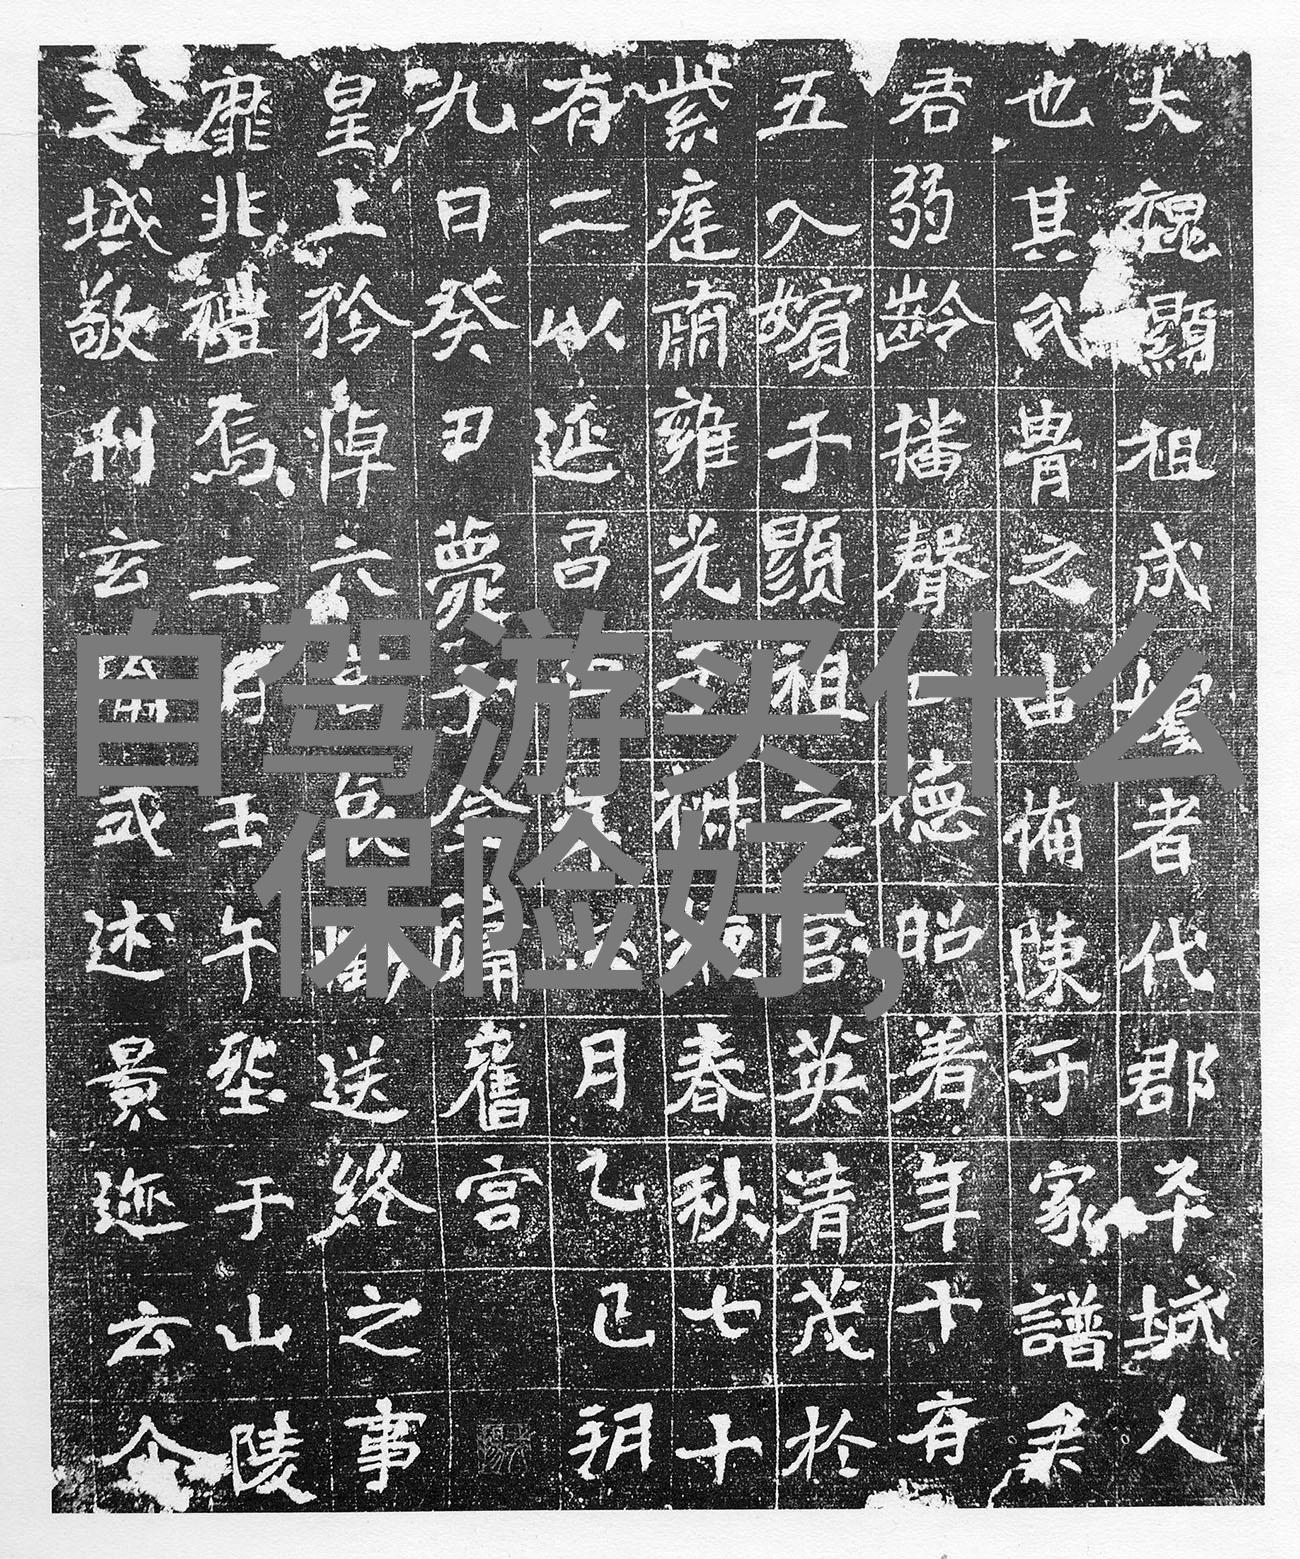 大魏顯祖成嬪者代郡平城人
也其氏胄之由備陳于家譜
君弱齡播聲德昭著年十有
五入嬪于顯祖之宮英清茂於
紫庭肅雍光秋春秋七十
有二以延昌月乙巳朔
九日癸丑薨于金墉舊宮
皇上矜悼六宮哀慟送終之事
靡北禮焉二月壬午塟于山陵
之域敬刊玄式述景迹云
自驾游买什么
保险好,